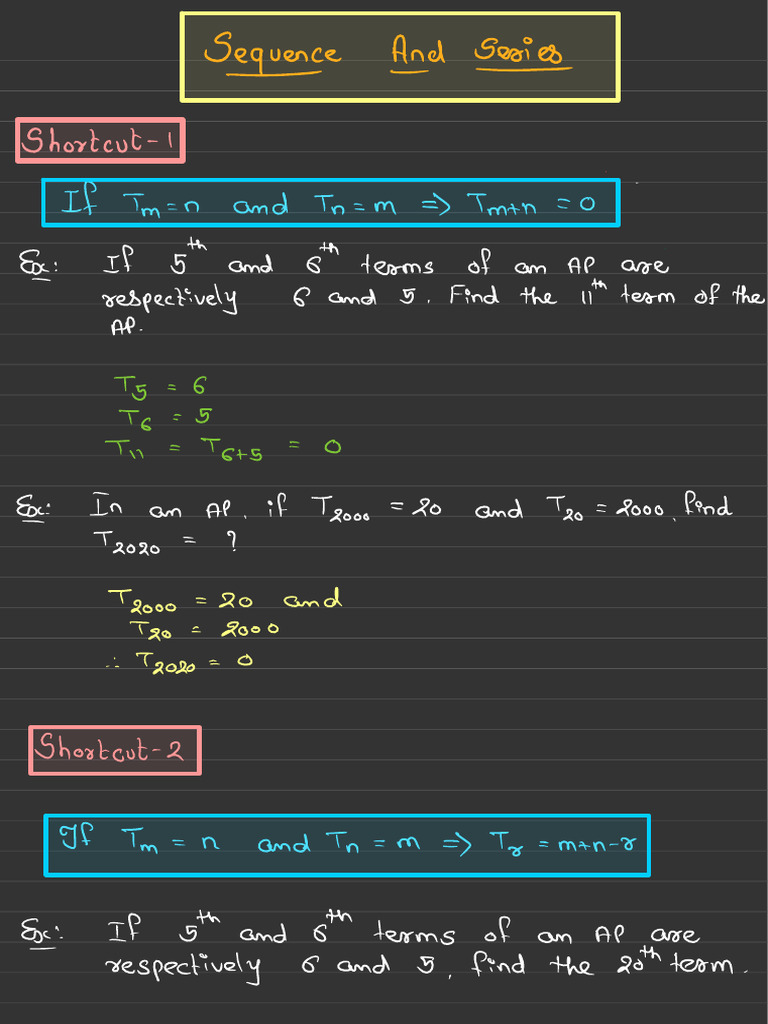 Sequence And Series
Shortcut-1
If Tm=n and Tn=m => Tm+n = 0
Ex: If 5th and 6th terms of an AP are
respectively 6 and 5. Find the 11th term of the
AP.
T5 = 6
T6 = 5
T11 = T6+5 = 0
Ex: In an AP, if T2000 = 20 and T20 = 2000, find
T2020 = ?
T2000 = 20 and
T20 = 2000
∴ T2020 = 0
Shortcut-2
If Tm = n and Tn = m => Tr = m+n-r
Ex: If 5th and 6th terms of an AP are
respectively 6 and 5, find the 20th term.